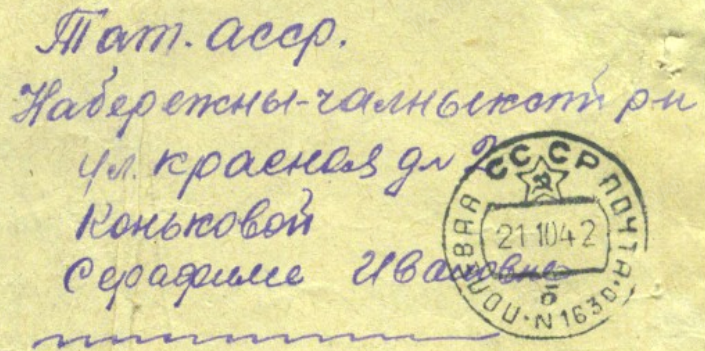 Тат. асср.
Набережны-чалныкский р-н
ул. красная дм 2
Коньковой
Серафиме Ивановне
СССР ПОЧТА
ПОЛЕВАЯ
21 10 4 2
б
N 1630